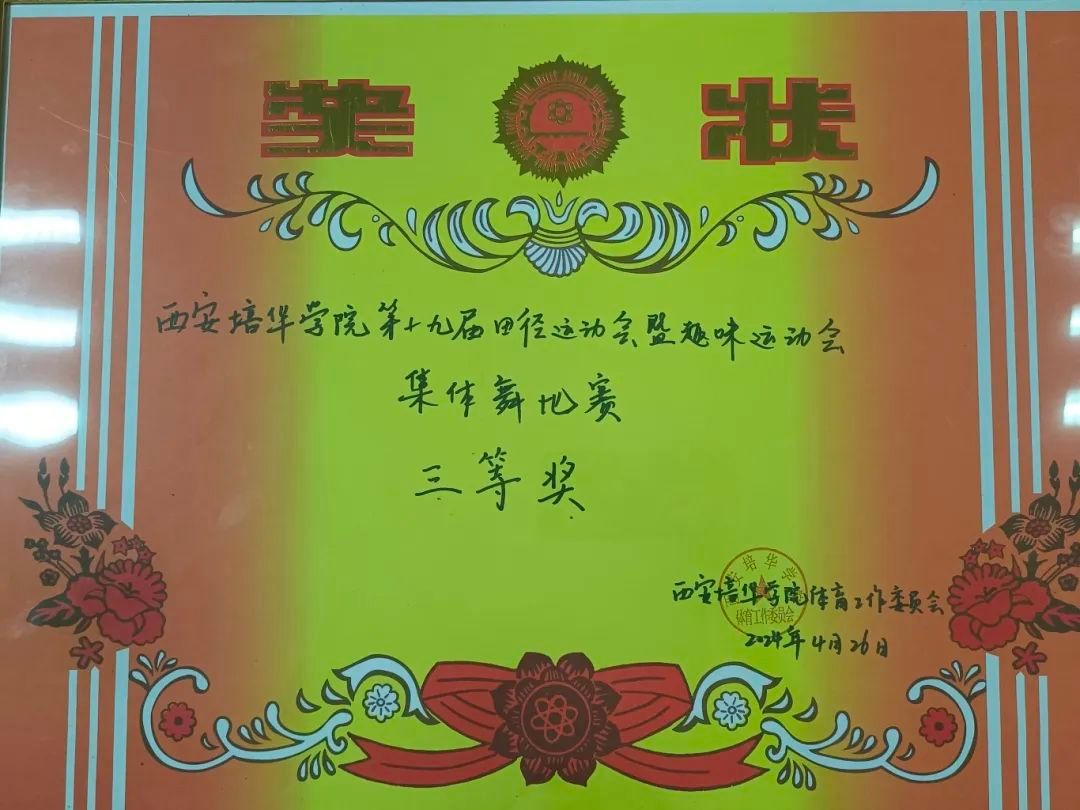 奖 状
西安培华学院第十九届田径运动会暨趣味运动会
集体舞比赛
三等奖
西安培华学院体育工作委员会
2024年4月26日
西安培华学院
体育工作委员会